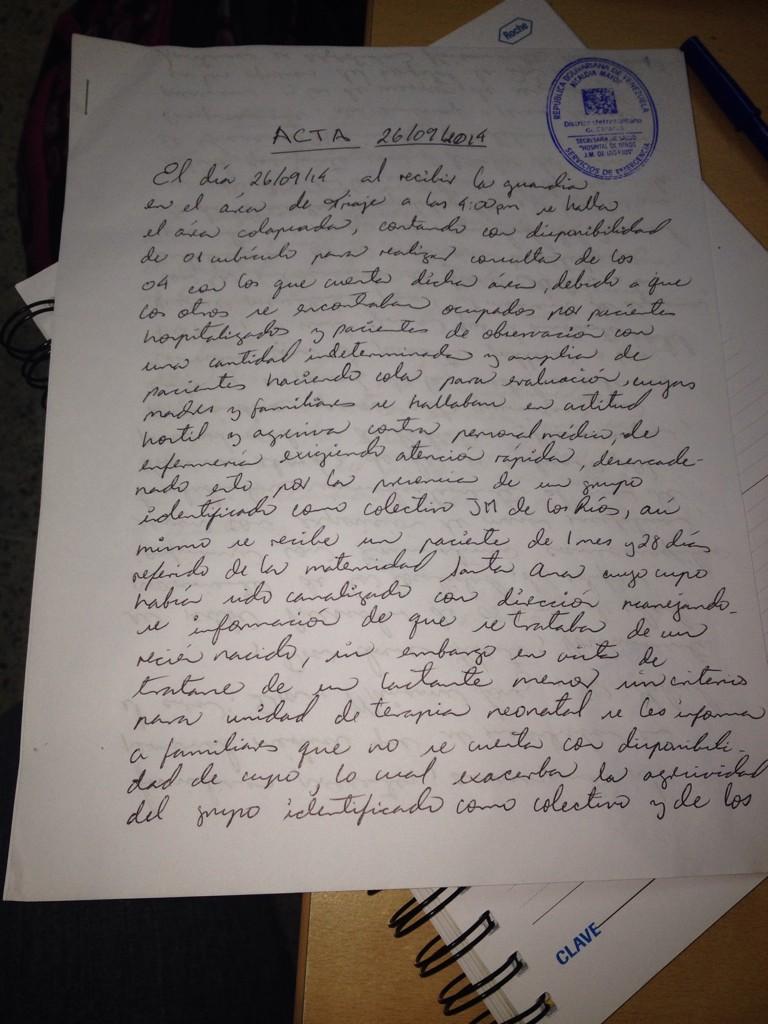 Roche
REPUBLICA BOLIVARIANA DE VENEZUELA
ALCALDIA MAYOR
Distrito Metropolitano
de Caracas
SECRETARIA DE SALUD
"HOSPITAL DE NIÑOS
J.M. DE LOS RIOS"
SERVICIOS DE EMERGENCIA
ACTA 26/09/2014
El día 26/09/14 al recibir la guardia
en el area de triaje a las 4:00pm se halla
el área colapsada, contando con disponibilidad
de 01 cubículo para realizar consulta de los
04 con los que cuenta dicha área, debido a que
los otros se encontraban ocupados por pacientes
hospitalizados y pacientes de observación con
una cantidad indeterminada y amplia de
pacientes haciendo cola para evaluación, cuyas
madres y familiares se hallaban en actitud
hostil y agresiva contra personal médico, de
enfermería exigiendo atención rápida, desencade-
nado esto por la presencia de un grupo
identificado como colectivo JM de los Ríos, así
mismo se recibe un paciente de 1 mes y 28 días
referido de la maternidad Santa Ana cuyo cupo
había sido canalizado con dirección manejando-
se información de que se trataba de un
recién nacido, sin embargo en vista de
tratarse de un lactante menor sin criterios
para unidad de terapia neonatal se les informa
a familiares que no se cuenta con disponibili-
dad de cupo, lo cual exacerba la agresividad
del grupo identificado como colectivo y de los
CLAVE